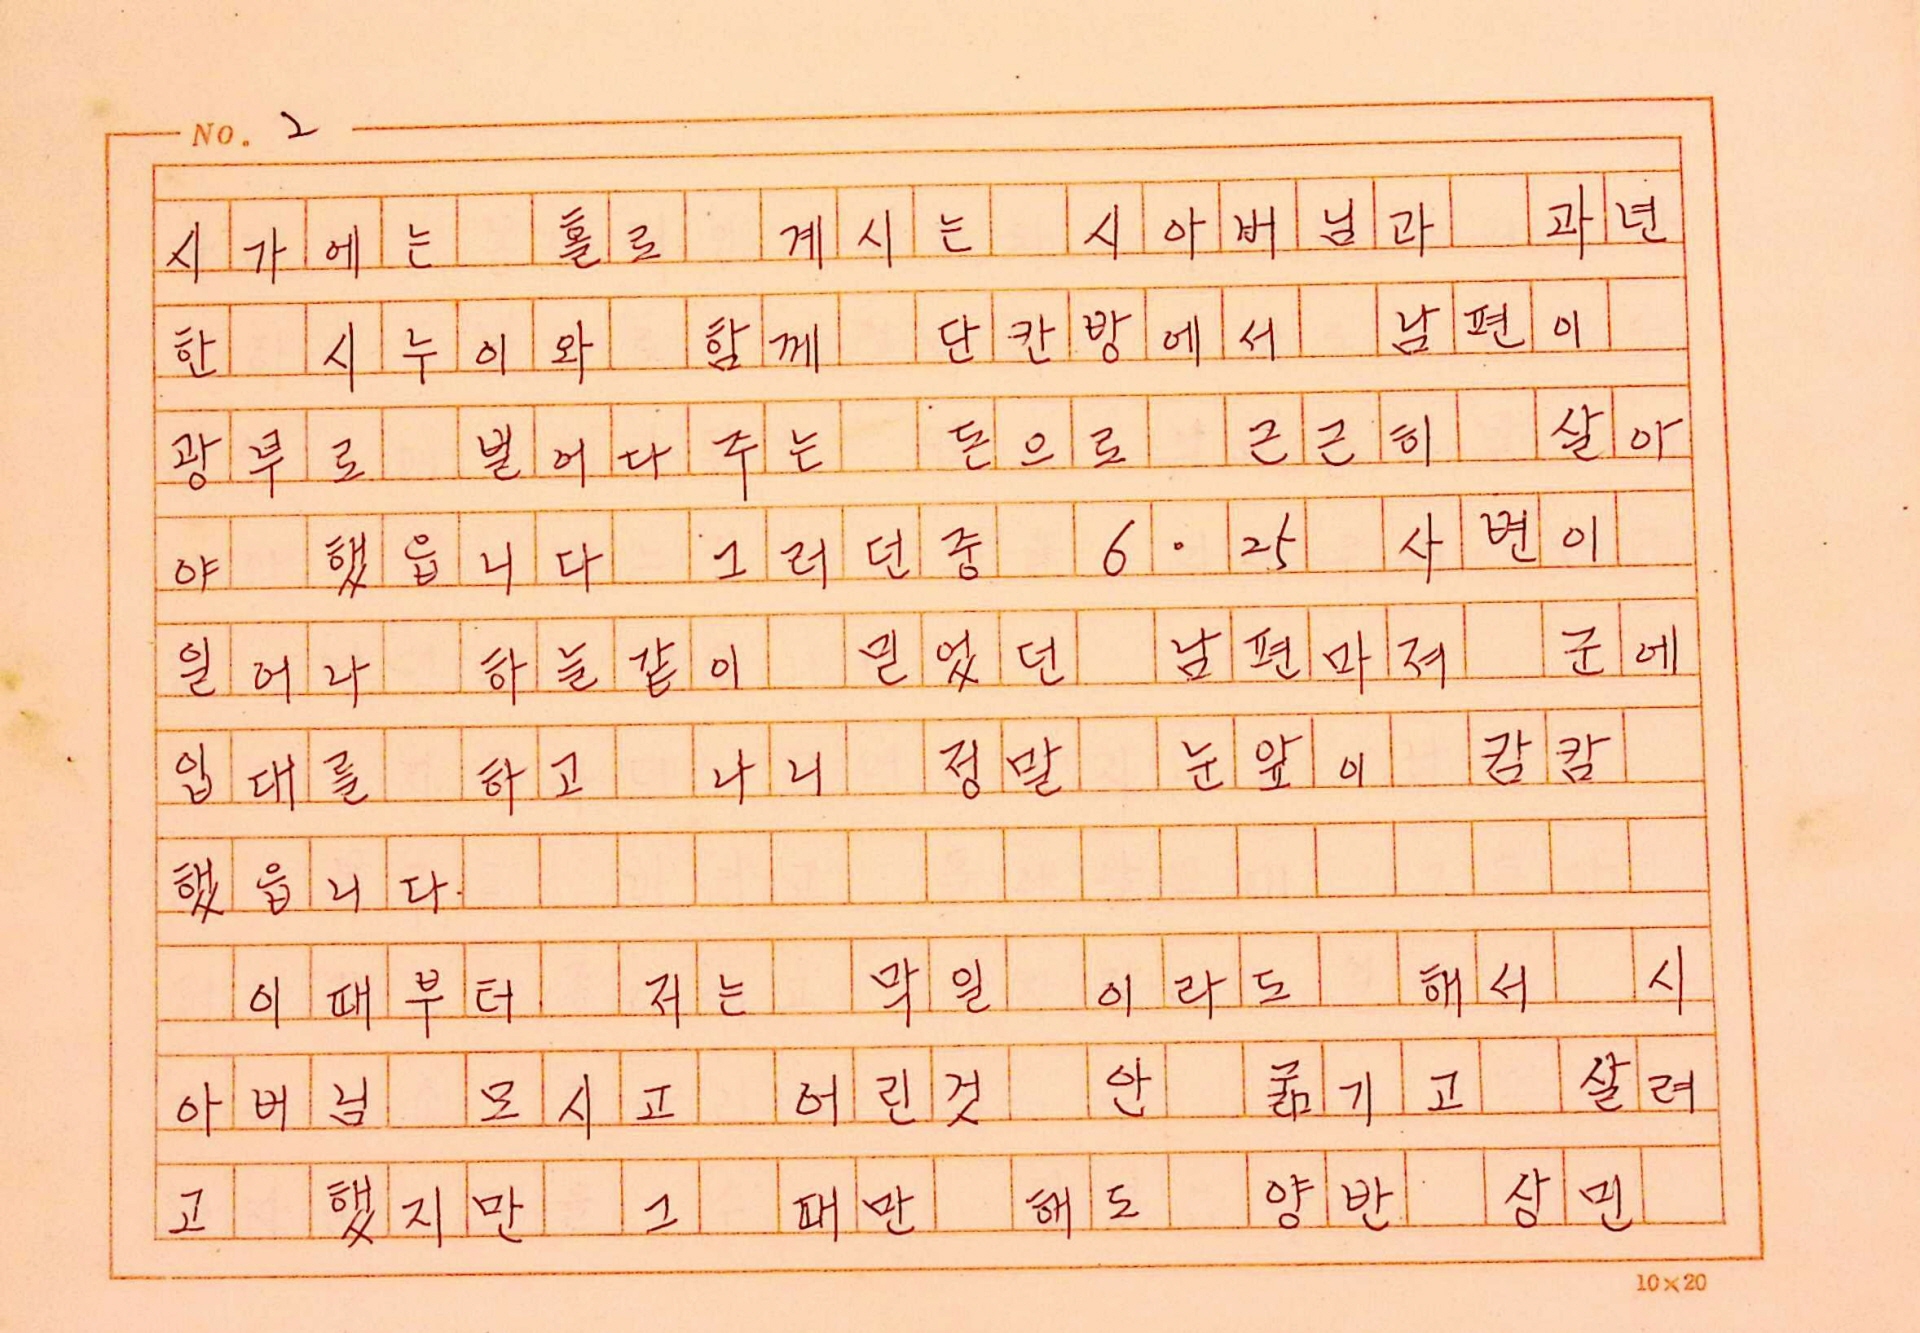 No. 2
시가에는 홀로 계시는 시아버님과 과년
한 시누이와 함께 단칸방에서 남편이
광부로 벌어다주는 돈으로 근근히 살아
야 했읍니다 그러던중 6·25 사변이
일어나 하늘같이 믿었던 남편마져 군에
입대를 하고 나니 정말 눈앞이 캄캄
했읍니다.
이때부터 저는 막일 이라도 해서 시
아버님 모시고 어린것 안 굶기고 살려
고 했지만 그 때만 해도 양반 상민
10×20